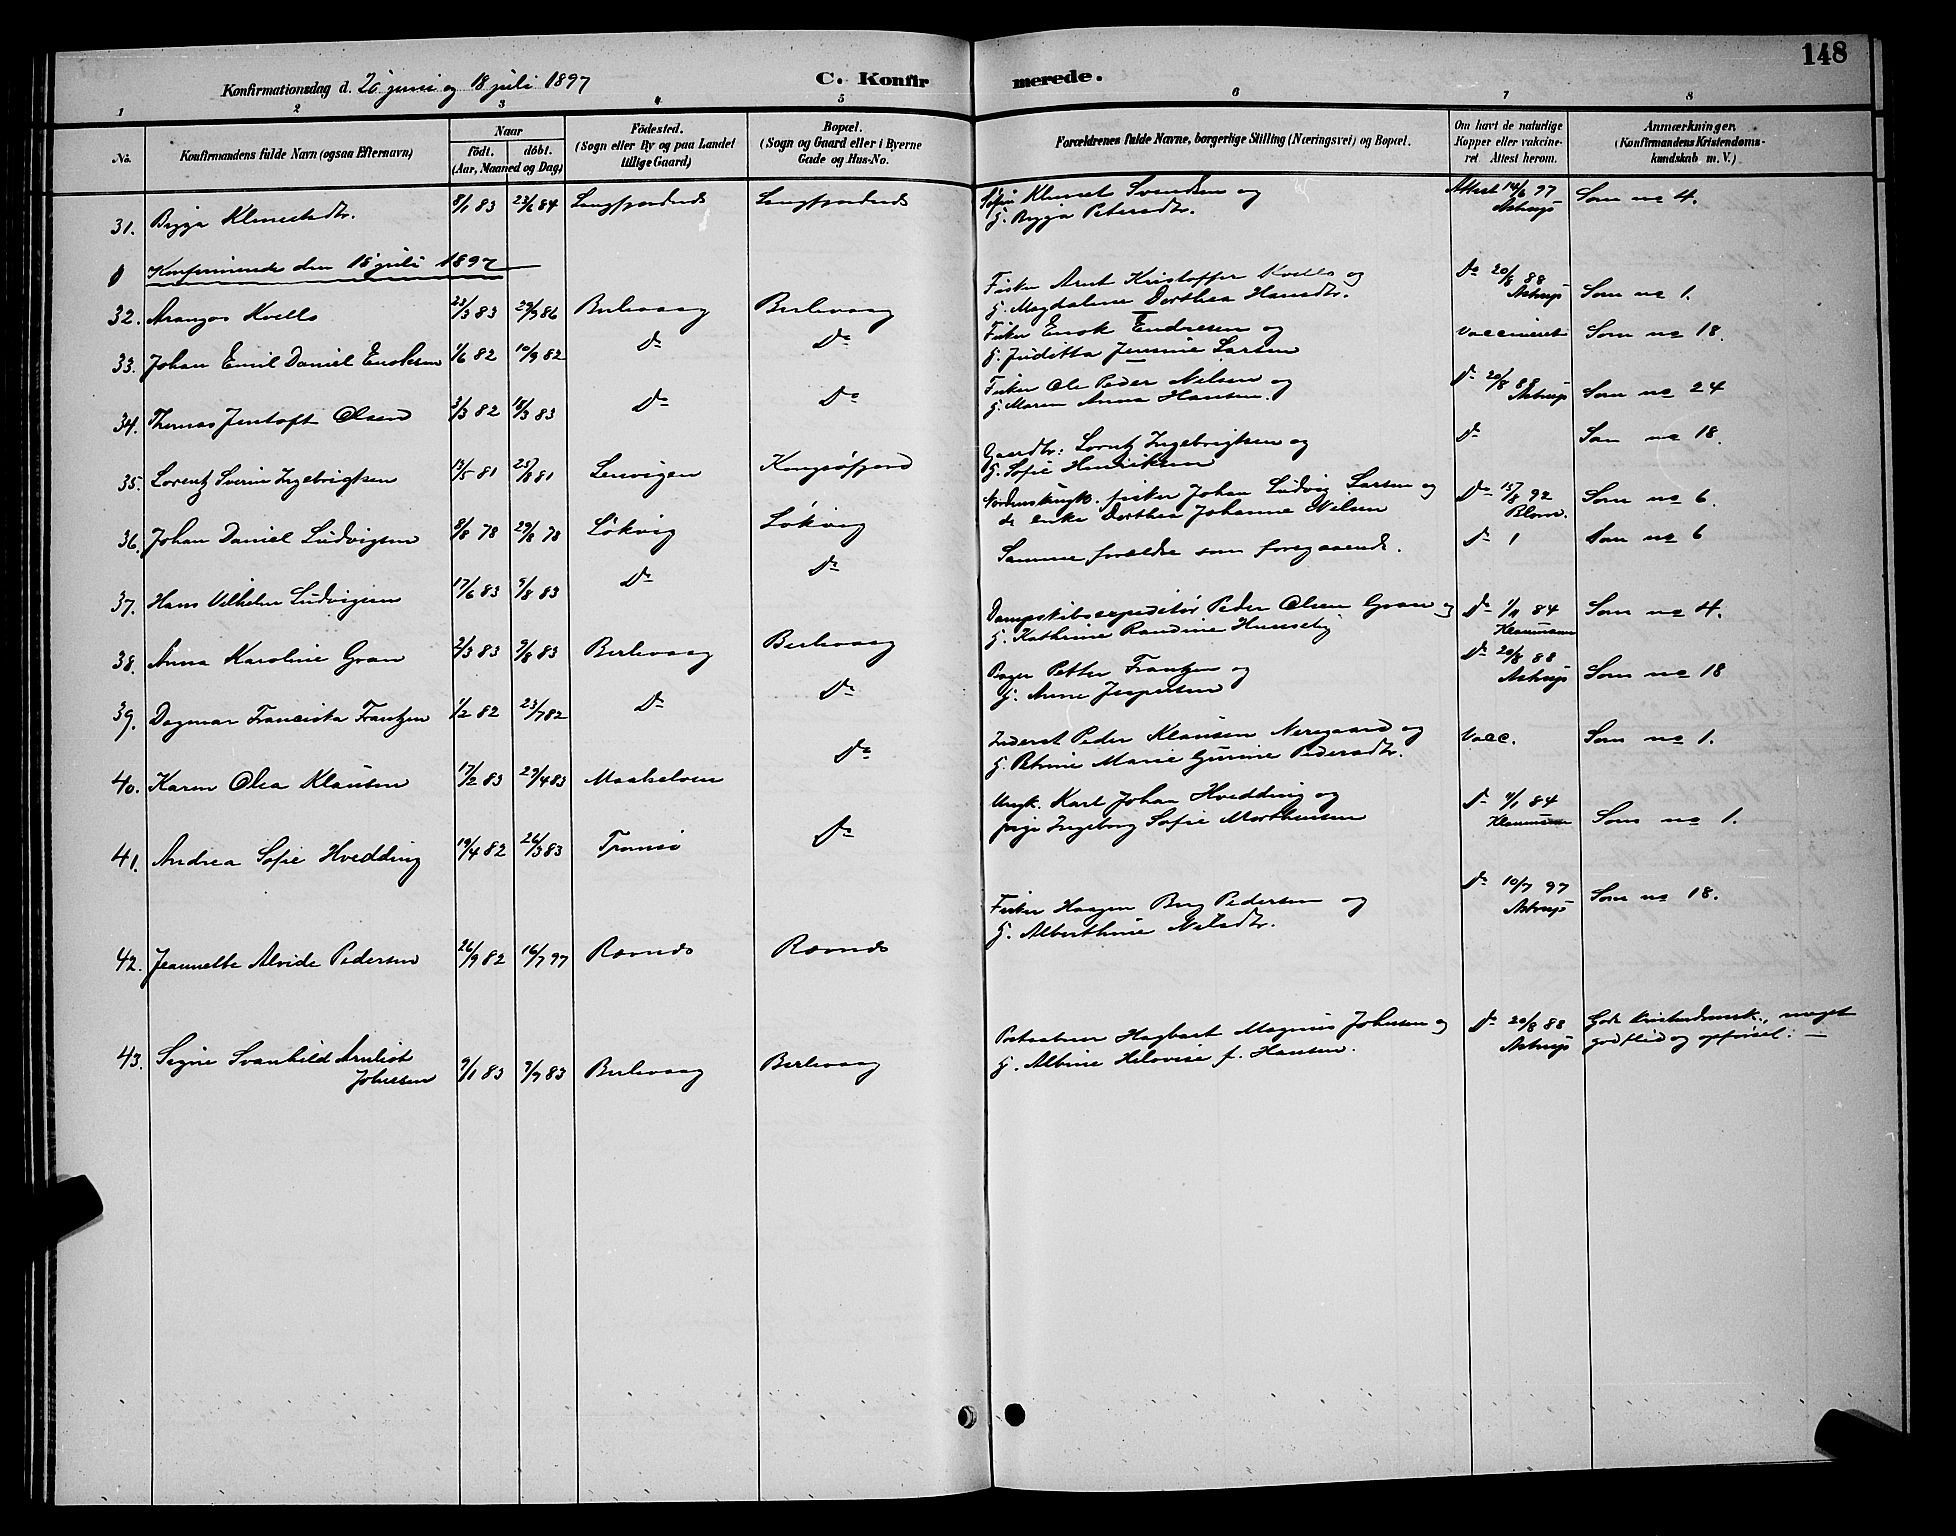 148
Konfirmationsdag d. 20 juni og 18 juli 1897
C. Konfirmerede.
1 2 3 4 5 6 7 8
No.
Konfirmandens fulde Navn (ogsaa Efternavn)
Naar
födt. döbt.
(Aar, Maaned og Dag)
Födested.
(Sogn eller By og paa Landet
tillige Gaard)
Bopæl.
(Sogn og Gaard eller i Byerne
Gade og Hus-No.
Forældrenes fulde Navne, borgerlige Stilling (Næringsvei) og Bopæl.
Om havt de naturlige
Kopper eller vakcine-
ret. Attest herom.
Anmærkninger.
(Konfirmandens Kristendoms-
kundskab m. V.)
31. Bigga Klemetsdtr. 8/1 83 23/6 84 Langfjordnes Langfjordnes Klemet Svendsen og Attest 14/6 97 Som no 4.
G. Bigga Petersdtr. Astrup
Konfirmerede den 18 juli 1897
32. Kvello 23/3 83 29/7 86 Berlevaag Berlevaag Fisker Arnt Kristoffer Kvello og Do 20/8 88 Som no 1.
G. Magdalene Dorthea Hansdtr. Astrup
33. Johan Emil Daniel Enoksen 1/6 82 10/9 82 Do Do Fisker Enok Endresen og Vaccineret Som no 18.
G. Juditta Jensine Larsen
34. Thomas Jentoft Olsen 3/3 82 18/3 83 Do Do Fisker Ole Peder Nilsen og Do 20/8 88 Som no 24
G. Maren Anna Hansen. Astrup
35. Lorentz Sverin Ingebrigtsen 13/5 81 25/8 81 Lervigen Kongsöfjord Gaardbr: Lorntz Ingebrigtsen og Do Som no 18.
G. Sofie Henriksen
36. Johan Daniel Ludvigsen 8/8 78 29/8 78 Lökvig Lökvig fisker Johan Ludvig Larsen og Do 15/8 92 Som no 6.
enke Dorthea Johanne Nilsen Blom.
37. Hans Vilhelm Ludvigsen 17/6 83 9/8 83 Do Do Samme forældre som foregaaende. Do 1 Som no 6
38. Anna Karoline Gran 2/3 83 9/8 83 Berlevaag Berlevaag Dampskibsexpeditör Peder Olsen Gran og Do 1/11 84 Som no 4.
G. Kathrine Randine Husseby Klaumann
39. Dagmar Franciska Frantzen 1/2 82 23/7 82 Do Do Bager Petter Frantzen og Do 20/8 88 Som no 18
G. Anne Jespersen Astrup
40. Karen Olea Klausen 17/2 83 29/4 83 Maalselven Do Inderst Peder Klausen Nergaard og Vacc. Som no 1.
G. Petrine Marie Gurine Pedersdtr.
41. Andrea Sofie Hvedding 19/4 82 26/3 83 Tromsö Do Ungk. Karl Johan Hvedding og Do 4/1 84 Som no 1.
pige Ingeborg Sofie Morthensen Klaumann
42. Jeannette Alvide Pedersen 26/9 82 16/7 97 Ravnes Ravnes Fisker Haagen Berg Pedersen og Do 10/7 97 Som no 18.
G. Alberthine Nilsdtr. Astrup
43. Signe Svanhild Arnliot 9/1 83 7/7 83 Berlevaag Berlevaag Postaabner Hagbart Magnus Johnsen og Do 20/8 88 God kristendomsk., meget
Johnsen G. Albine Helovise f. Hansen. Astrup god flid og opförsel. —